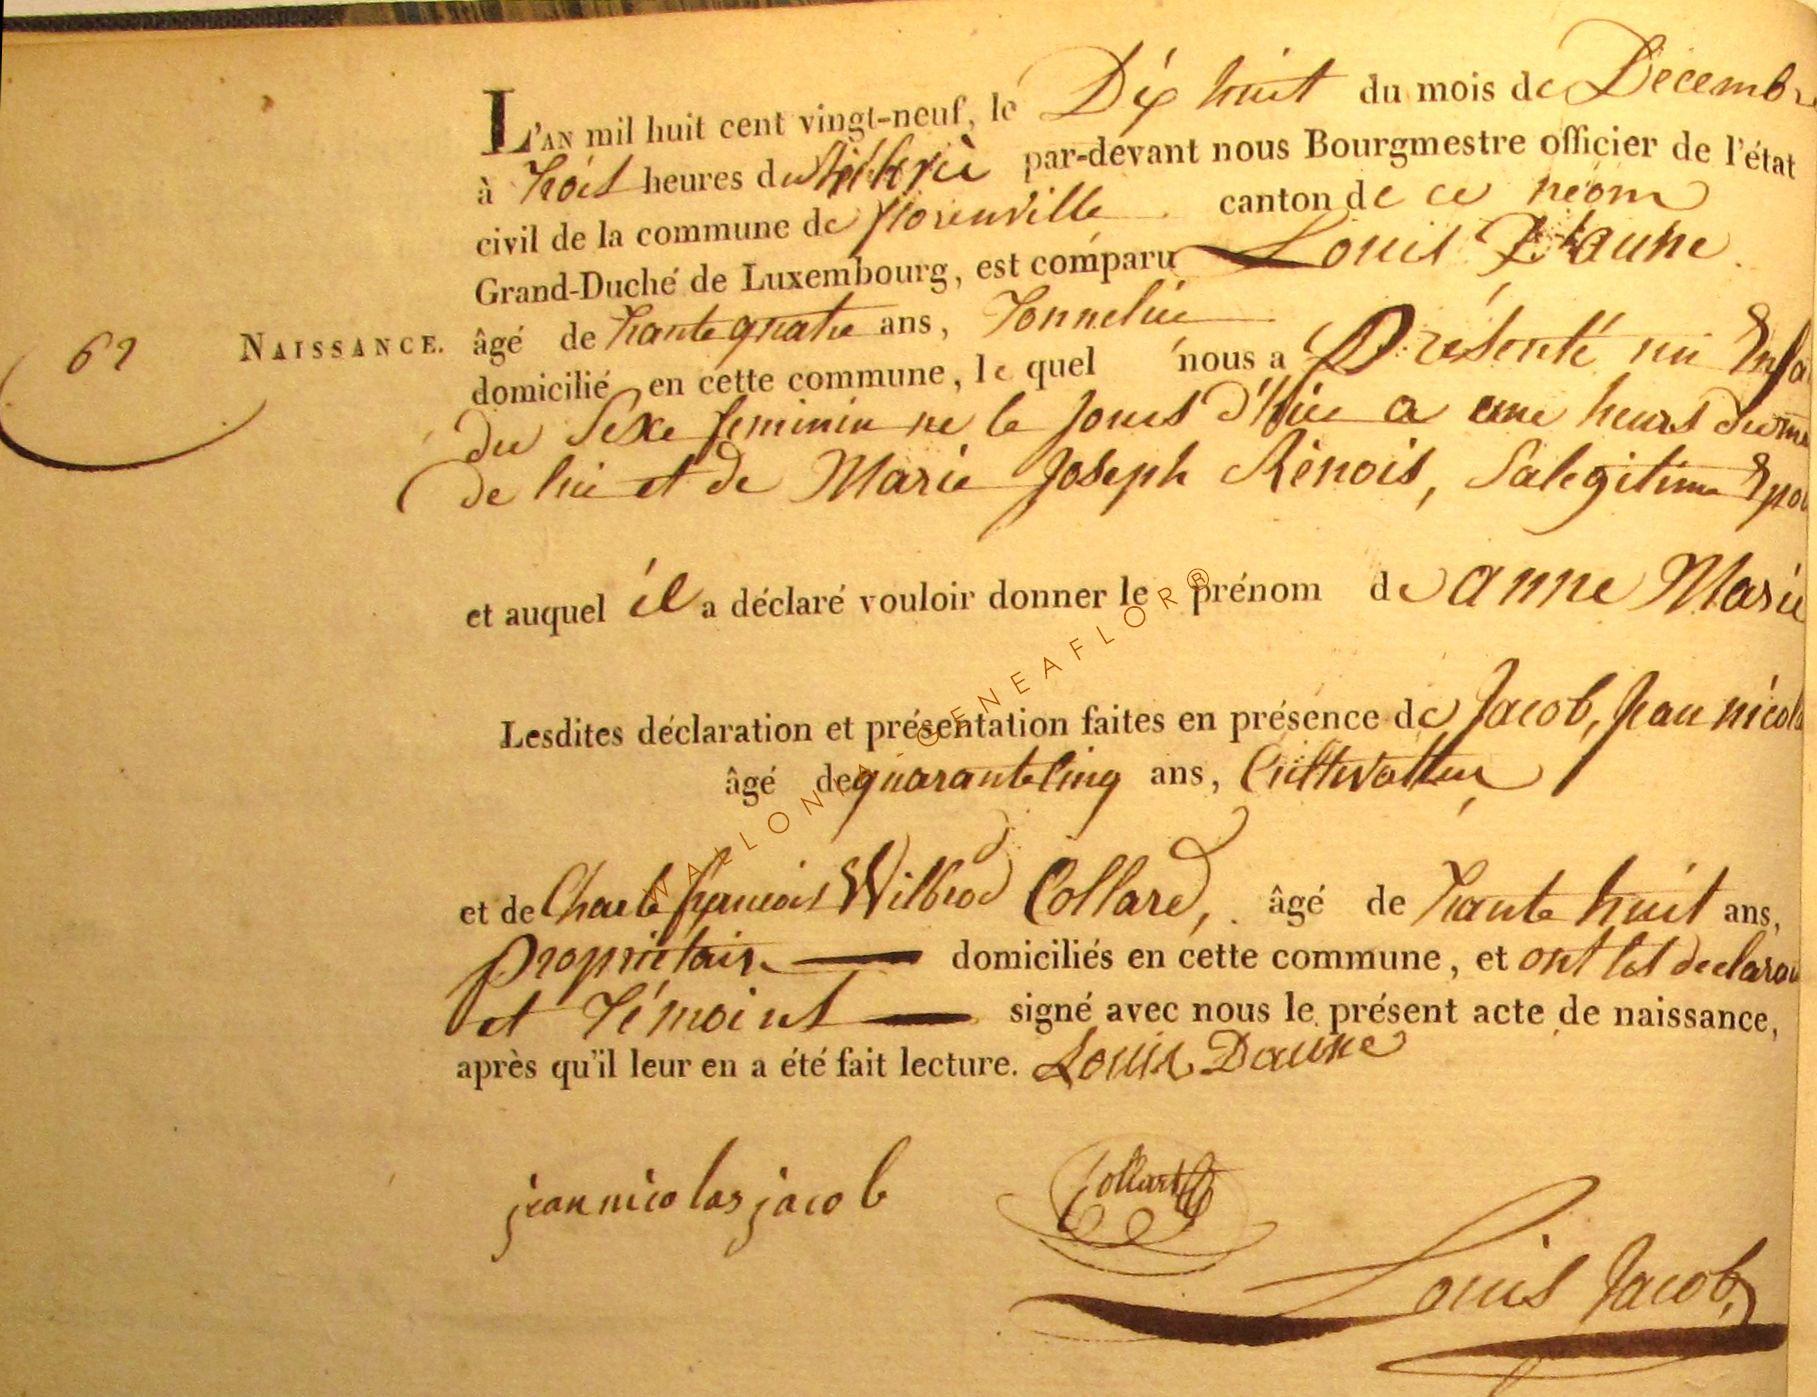 L'AN mil huit cent vingt-neuf, le Dix huit du mois de Decembre
à trois heures du par-devant nous Bourgmestre officier de l'état
civil de la commune de florenville canton de ce nom
Grand-Duché de Luxembourg, est comparu Louis Daune
62 NAISSANCE. âgé de trante quatre ans, Tonnelier
domicilié en cette commune, le quel nous a Présenté un Enfa
du Sexe feminin ne le jours d'hier a une heurs du
de lui et de Marie Joseph Rénois, Salegitime Epou
et auquel il a déclaré vouloir donner le prénom de anne Marie
Lesdites déclaration et présentation faites en présence de Jacob, jean nicola
âgé de quarante cinq ans, Cultivatteur
et de Charle françois Wilbrod Collard, âgé de trante huit ans,
propriétair domiciliés en cette commune, et ont les declaran
et Témoins signé avec nous le présent acte de naissance,
après qu'il leur en a été fait lecture. Louis Daune
jean nicolas jacob Collard
Louis Jacob
WALLONIA GENEAFLOR®